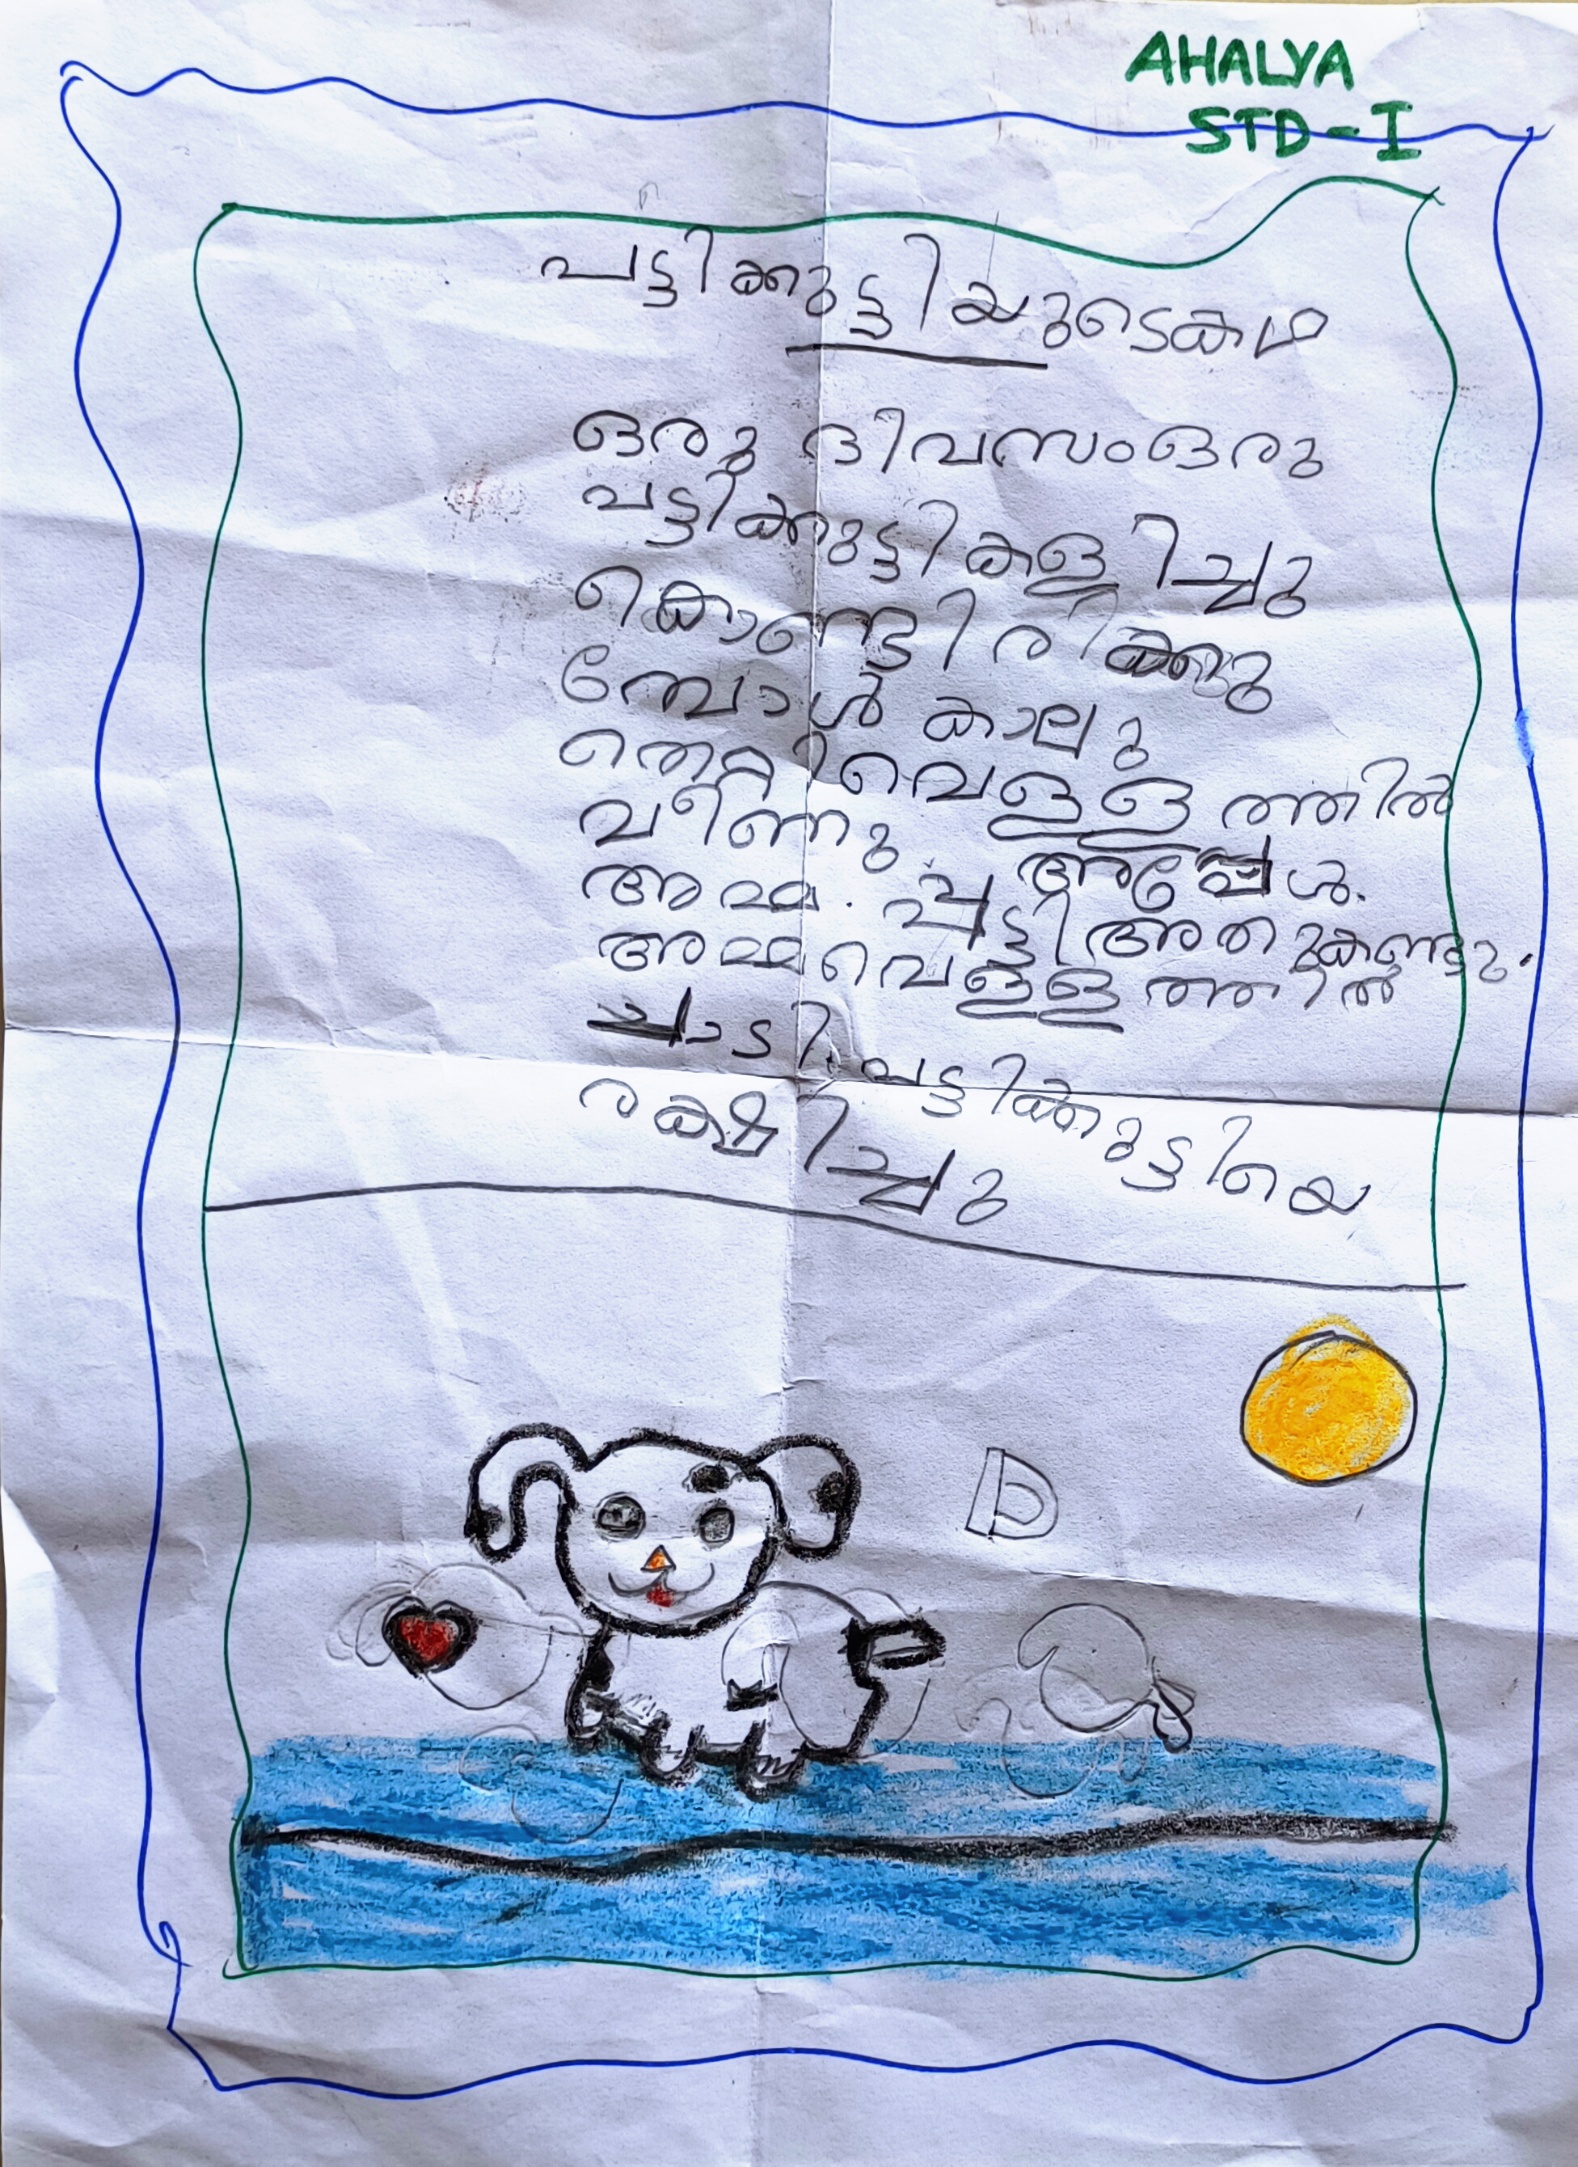 AHALYA
STD-I
പട്ടിക്കുട്ടിയുടെകഥ
ഒരു ദിവസംഒരു
പട്ടിക്കുട്ടി കളിച്ചു
കൊണ്ടിരിക്കു
മ്പോൾ കാലു
തെറ്റിവെള്ളത്തിൽ
വീണു. അപ്പോൾ.
അമ്മ. പട്ടി അതുകണ്ടു.
അമ്മവെള്ളത്തിൽ
ചാടി. പട്ടിക്കുട്ടിയെ
രക്ഷിച്ചു
D